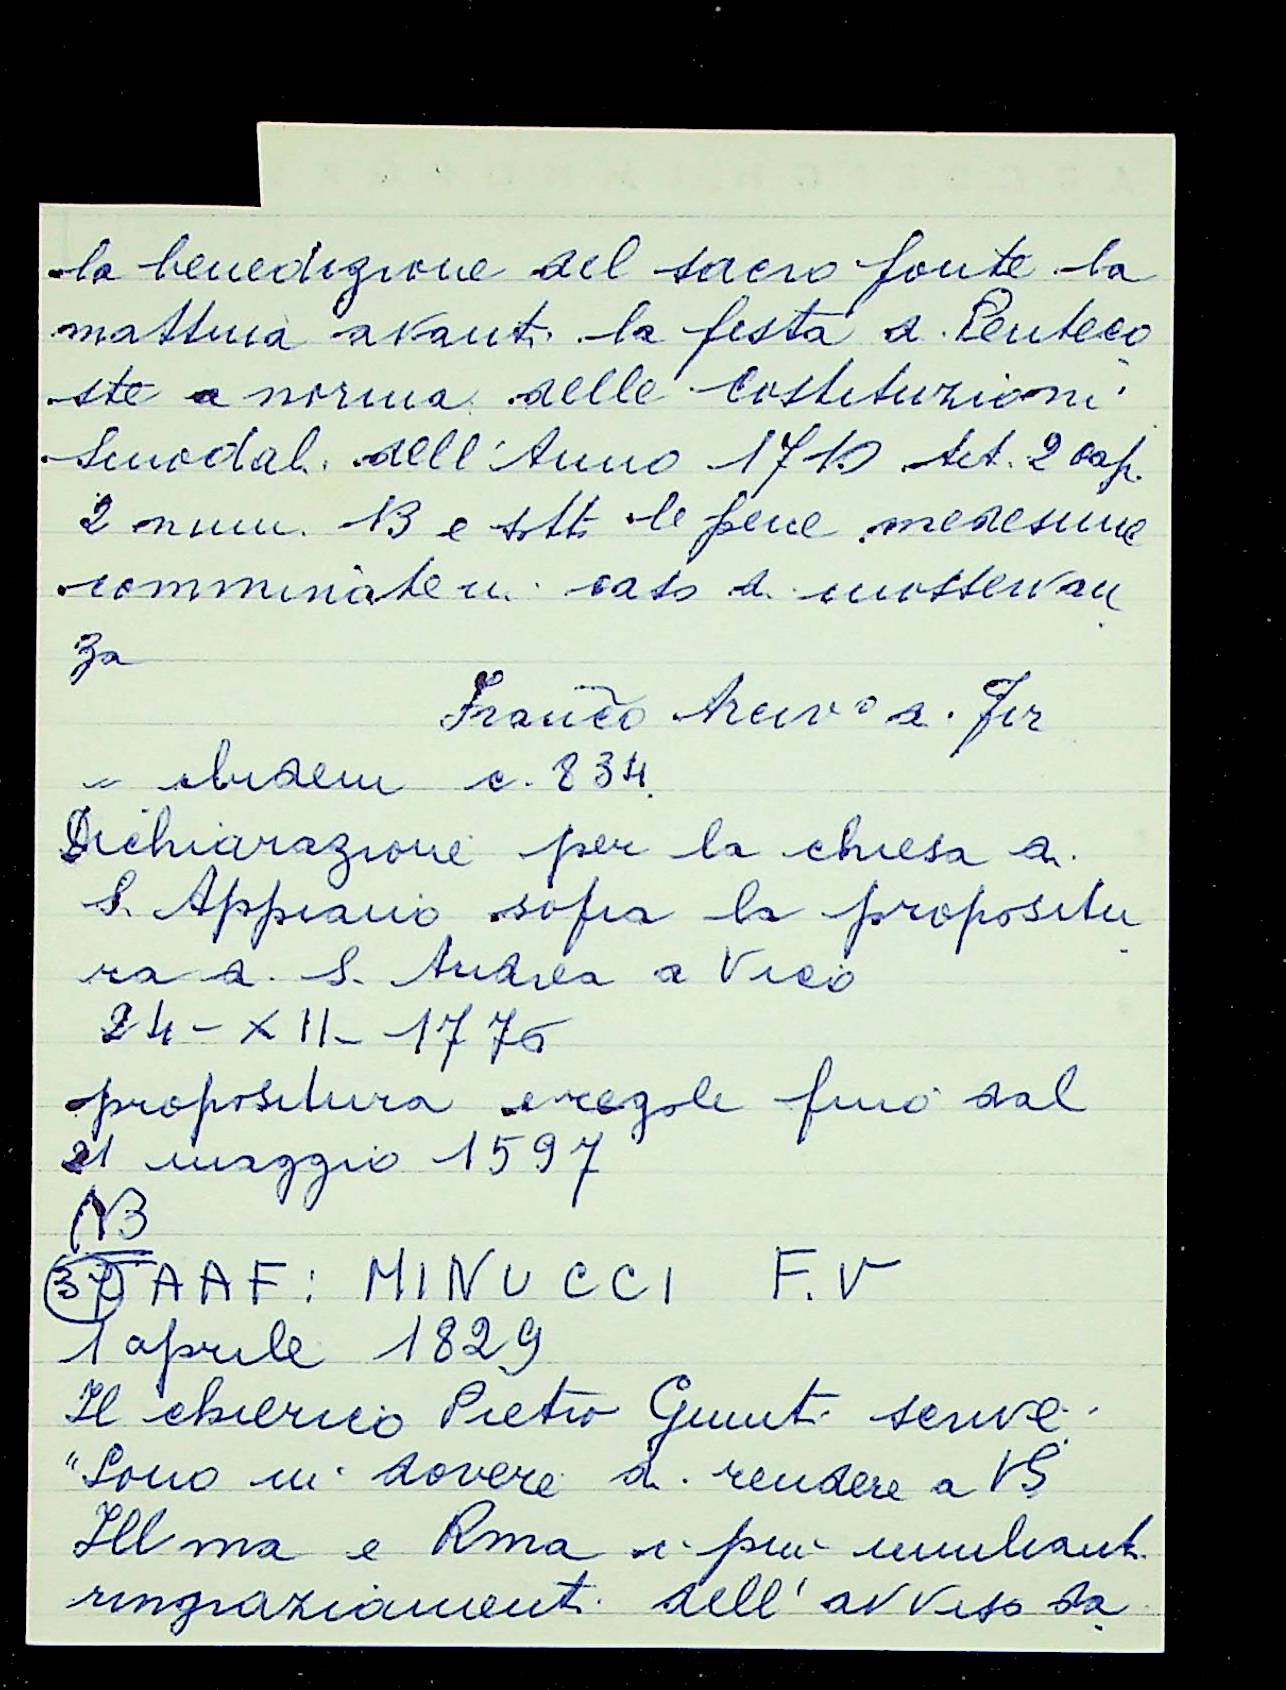 la benedizione del sacro fonte la
mattina avanti la festa di Penteco
ste a norma delle Costituzioni
Sinodali dell'Anno 1710 tit. 2 cap.
2 num. 13 e sotto le pene medesime
comminate in caso di inosservan
za
Franco Arciv° di Fir
" ibidem c. 834
Dichiarazione per la chiesa di
S. Appiano sopra la propositu
ra di S. Andrea a Vico
24-XII-1776
propositura e regole fino dal
21 maggio 1597
NB
37 AAF: MINUCCI F.V
1 aprile 1829
Il chierico Pietro Giunti scrive:
"Sono in dovere di rendere a VS
Ill ma e Rma i più umilianti
ringraziamenti dell'avviso da